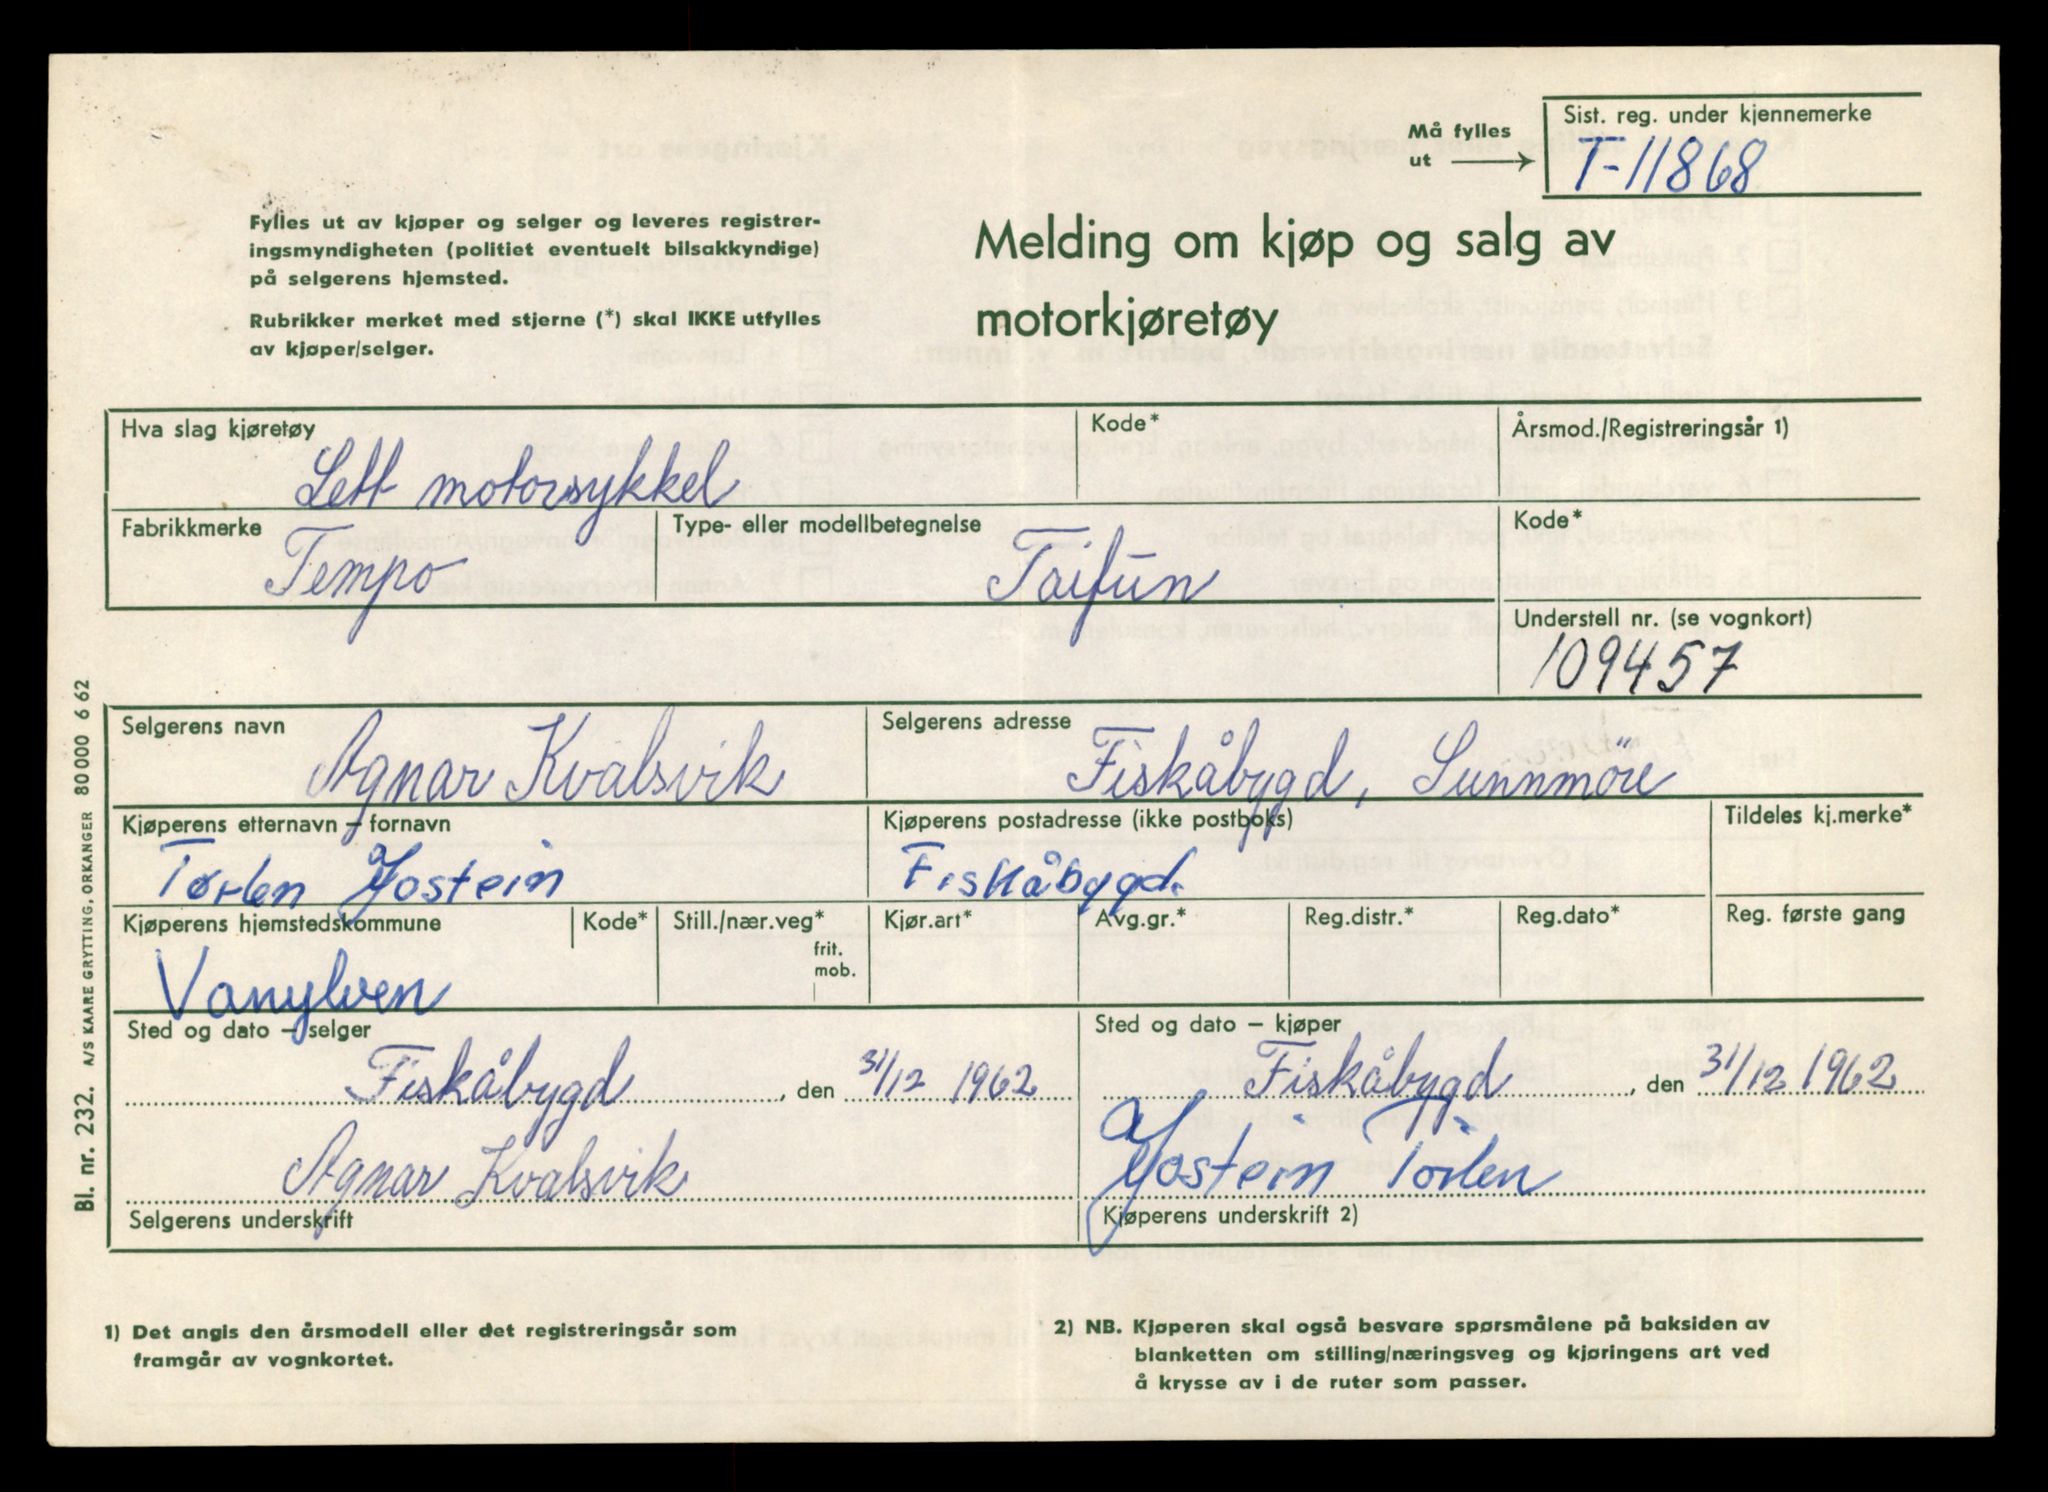 Sist. reg. under kjennemerke
Må fylles
ut
T-11868
Fylles ut av kjøper og selger og leveres registrer-
ingsmyndigheten (politiet eventuelt bilsakkyndige)
på selgerens hjemsted.
Rubrikker merket med stjerne (*) skal IKKE utfylles
av kjøper/selger.
Melding om kjøp og salg av
motorkjøretøy
Hva slag kjøretøy
Kode*
Årsmod./Registreringsår 1)
Lett motorsykkel
Fabrikkmerke
Type- eller modellbetegnelse
Kode*
Tempo
Taifun
Understell nr. (se vognkort)
109457
Selgerens navn
Selgerens adresse
Agnar Kvalsvik
Fiskåbygd, Sunnmöre
Kjøperens etternavn – fornavn
Kjøperens postadresse (ikke postboks)
Tildeles kj.merke*
Jostein
Fiskåbygd.
Kjøperens hjemstedskommune
Kode*
Still./nær.veg*
Kjør.art*
Avg.gr.*
Reg.distr.*
Reg.dato*
Reg. første gang
frit.
mob.
Vanylven
Sted og dato – selger
Sted og dato – kjøper
Fiskåbygd, den 31/12 1962
Fiskåbygd, den 31/12 1962
Agnar Kvalsvik
Jostein
Selgerens underskrift
Kjøperens underskrift 2)
1) Det angis den årsmodell eller det registreringsår som
framgår av vognkortet.
2) NB. Kjøperen skal også besvare spørsmålene på baksiden av
blanketten om stilling/næringsveg og kjøringens art ved
å krysse av i de ruter som passer.
Bl. nr. 232. A/S KAARE GRYTTING, ORKANGER 80000 6 62